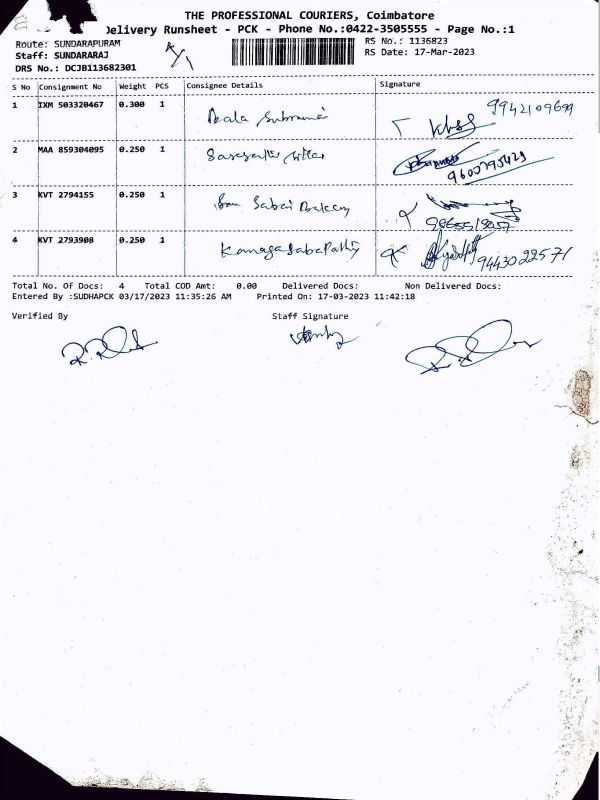 THE PROFESSIONAL COURIERS, Coimbatore
Delivery Runsheet - PCK - Phone No.:0422-3505555 - Page No.:1
Route: SUNDARAPURAM
RS No.: 1136823
Staff: SUNDARARAJ
RS Date: 17-Mar-2023
DRS No.: DCJB113682301
S No Consignment No Weight PCS Consignee Details Signature
1 IXM 503320467 0.300 1 Bala 9942109699
2 MAA 859304095 0.250 1 9600795429
3 KVT 2794155 0.250 1
4 KVT 2793908 0.250 1 KanagasabaPathy 9443022571
Total No. Of Docs: 4 Total COD Amt: 0.00 Delivered Docs: Non Delivered Docs:
Entered By :SUDHAPCK 03/17/2023 11:35:26 AM Printed On: 17-03-2023 11:42:18
Verified By Staff Signature